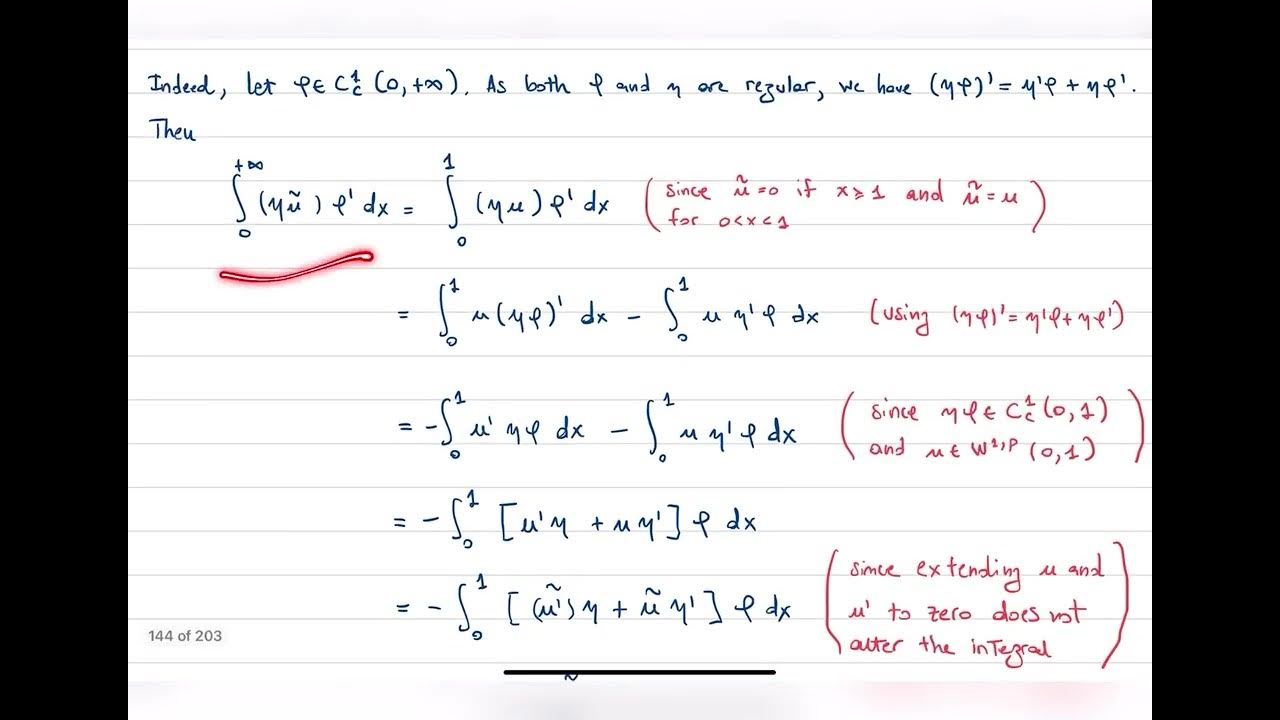 Indeed, let φ ∈ C_c^1 (0,+∞). As both φ and η are regular, we have (ηφ)' = η'φ + ηφ'.
Then
∫_0^{+∞} (ηũ) φ' dx = ∫_0^1 (ηu) φ' dx (since ũ=0 if x≥1 and ũ=u for 0<x<1)
= ∫_0^1 u(ηφ)' dx − ∫_0^1 u η'φ dx (using (ηφ)'=η'φ+ηφ')
= −∫_0^1 u' ηφ dx − ∫_0^1 u η' φ dx (since ηφ ∈ C_c^1 (0,1) and u ∈ W^{1,p} (0,1))
= −∫_0^1 [u'η + uη'] φ dx
= −∫_0^1 [(ũ')η + ũη'] φ dx (since extending u and u' to zero does not alter the integral)
144 of 203